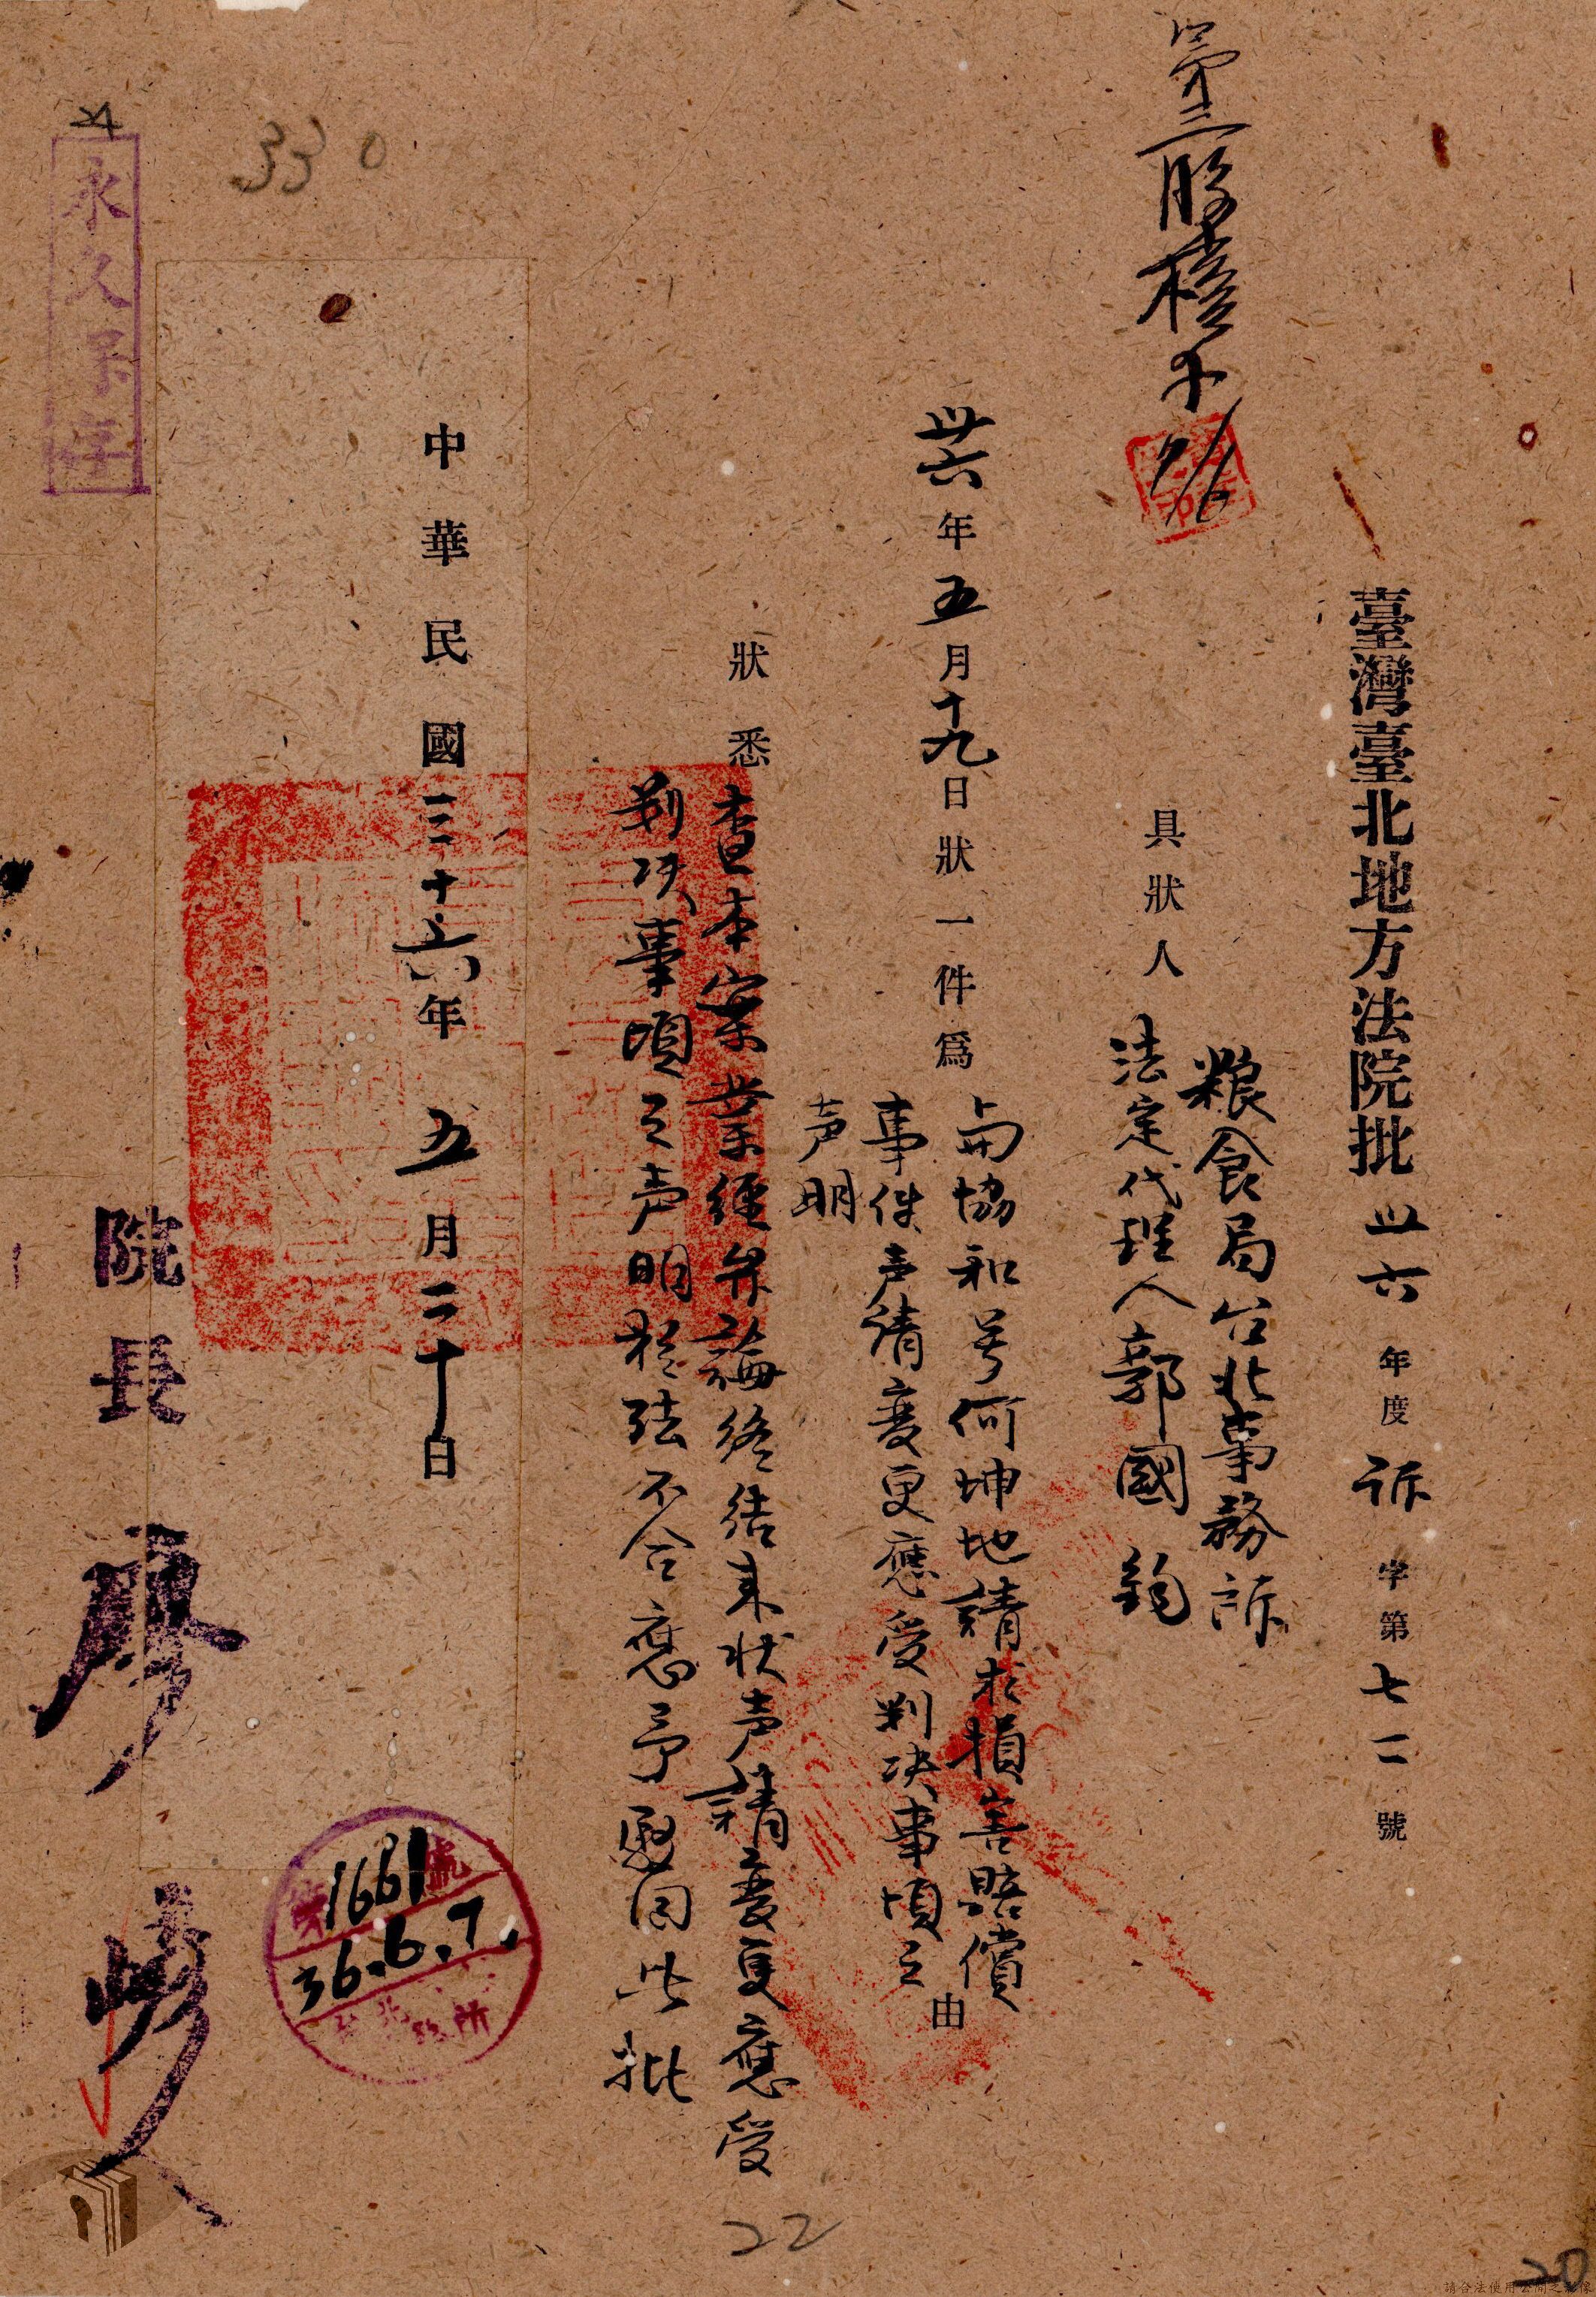 臺灣臺北地方法院批 卅六年度訴字第七一號
粮食局台北事務訴
具狀人
法定代理人郭國鈞
第三股
7/6
卅六年五月十九日狀一件為
与協和号何坤地請求損害賠償
事件声请変更應受判决事項之
声明
由
狀悉
查本案業經弁論終结来状声請変更應受
判决事項之声明於法不合應予駁回此批
中華民國三十六年五月二十日
院長廖
第1661號
36.6.7.
台北 所
永久保存
330
22
20
請合法使用公開之影像